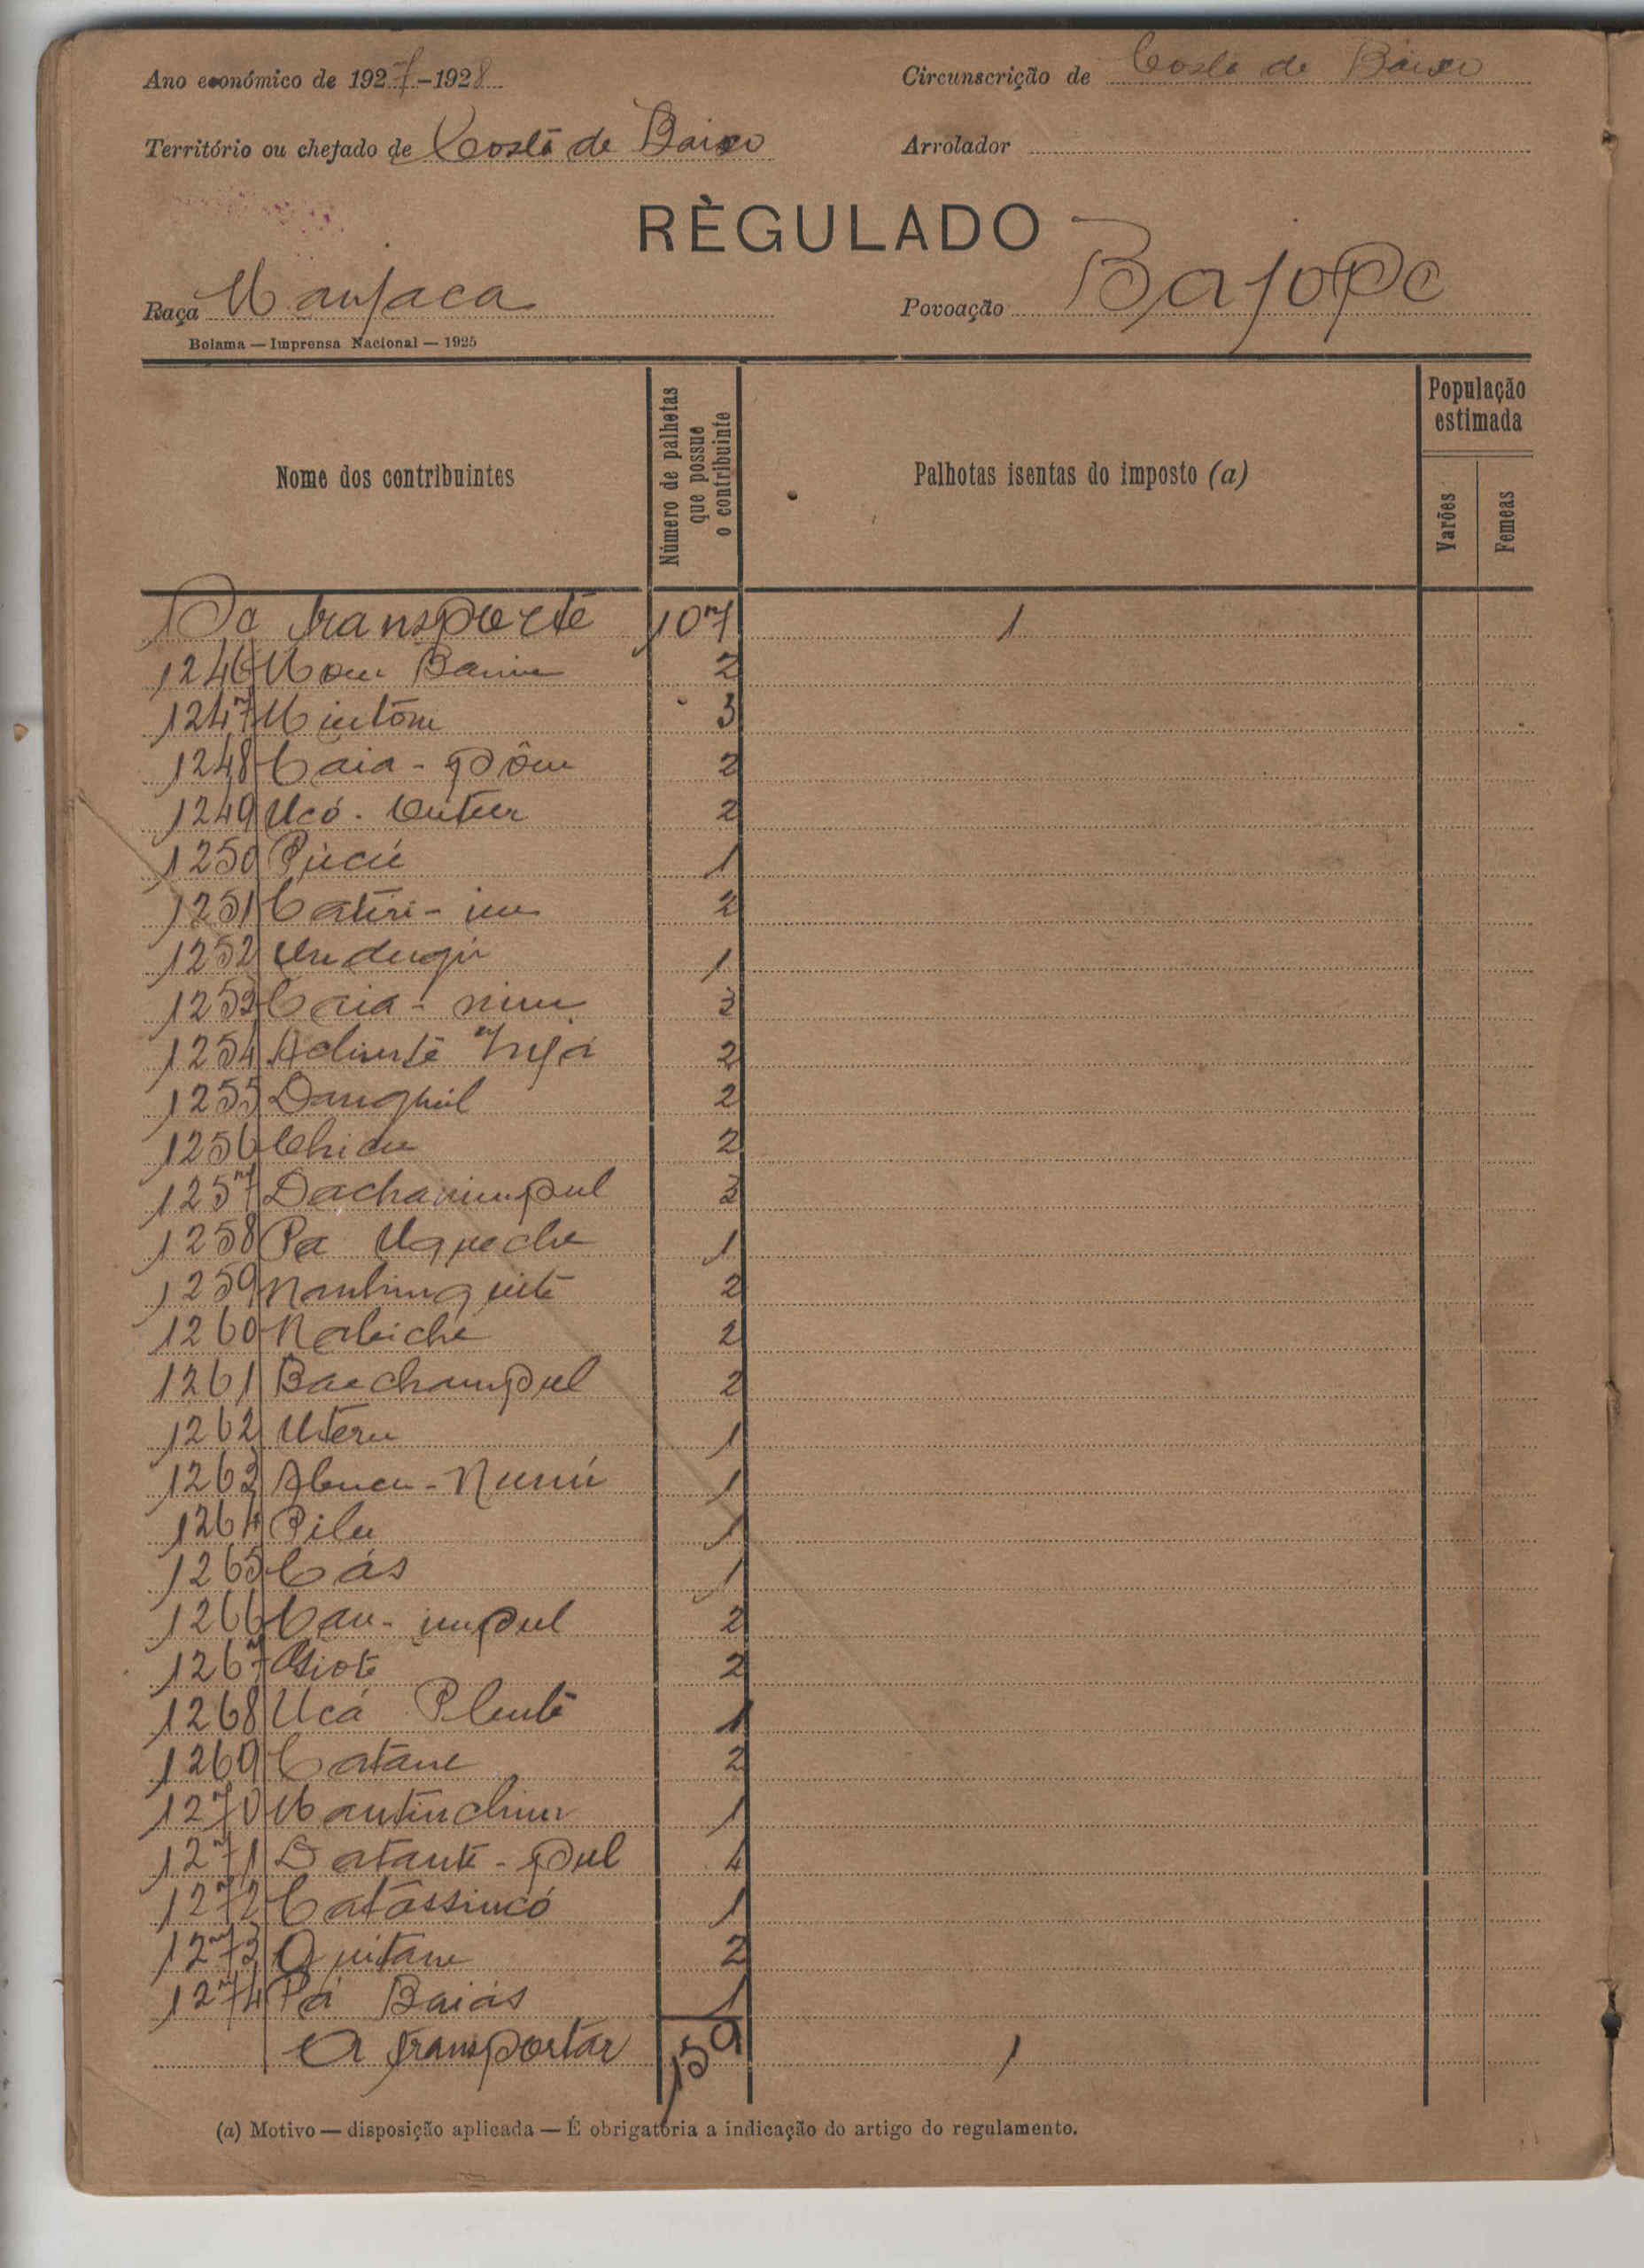 Ano económico de 1927-1928
Circunscrição de Costa de Baixo
Território ou chefado de Costa de Baixo
Arrolador
RÈGULADO
Raça Manjaca
Povoação Bajope
Bolama — Imprensa Nacional — 1925
Nome dos contribuintes
Número de palhotas que possue o contribuinte
Palhotas isentas do imposto (a)
População estimada
Varões
Femeas
De transporte 107 1
1246 2
1247 Mintôm 3
1248 Caia-pôm 2
1249 Ucó 2
1250 Púcú 1
1251 2
1252 Undugú 1
1253 Caia 3
1254 2
1255 Danghil 2
1256 2
1257 3
1258 Pa 1
1259 2
1260 Nabiche 2
1261 Baechampul 2
1262 Uteru 1
1263 1
1264 Pilu 1
1265 Cás 1
1266 Cau-impul 2
1267 2
1268 Ucá 1
1269 Catane 2
1270 1
1271 Datante-pul 4
1272 Catassincó 1
1273 Quitane 2
1274 Pá Baiás 1
A transportar 159 1
(a) Motivo — disposição aplicada — É obrigatória a indicação do artigo do regulamento.